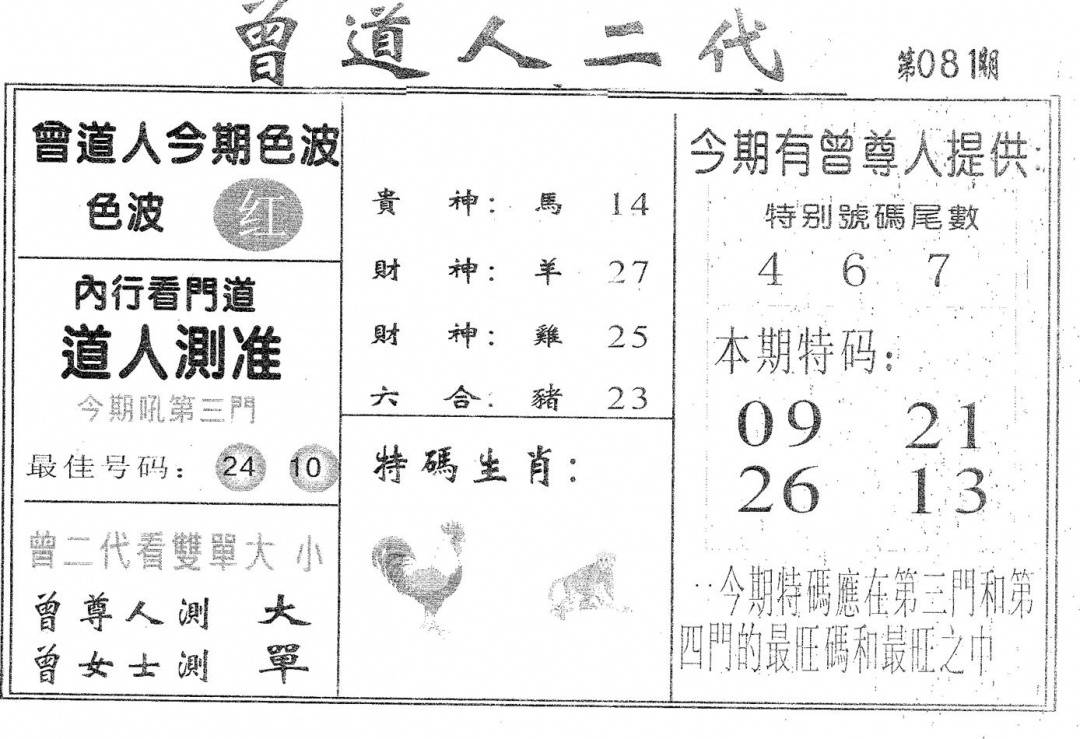 曾道人二代
第081期
曾道人今期色波
色波 红
內行看門道
道人測准
今期吼第三門
最佳号码: 24 10
曾二代看雙單大 小
曾尊人測 大
曾女士測 單
貴 神: 馬 14
財 神: 羊 27
財 神: 雞 25
六 合: 豬 23
特碼生肖:
今期有曾尊人提供:
特别號碼尾數
4 6 7
本期特码:
09 21
26 13
··今期特碼應在第三門和第
四門的最旺碼和最旺之中